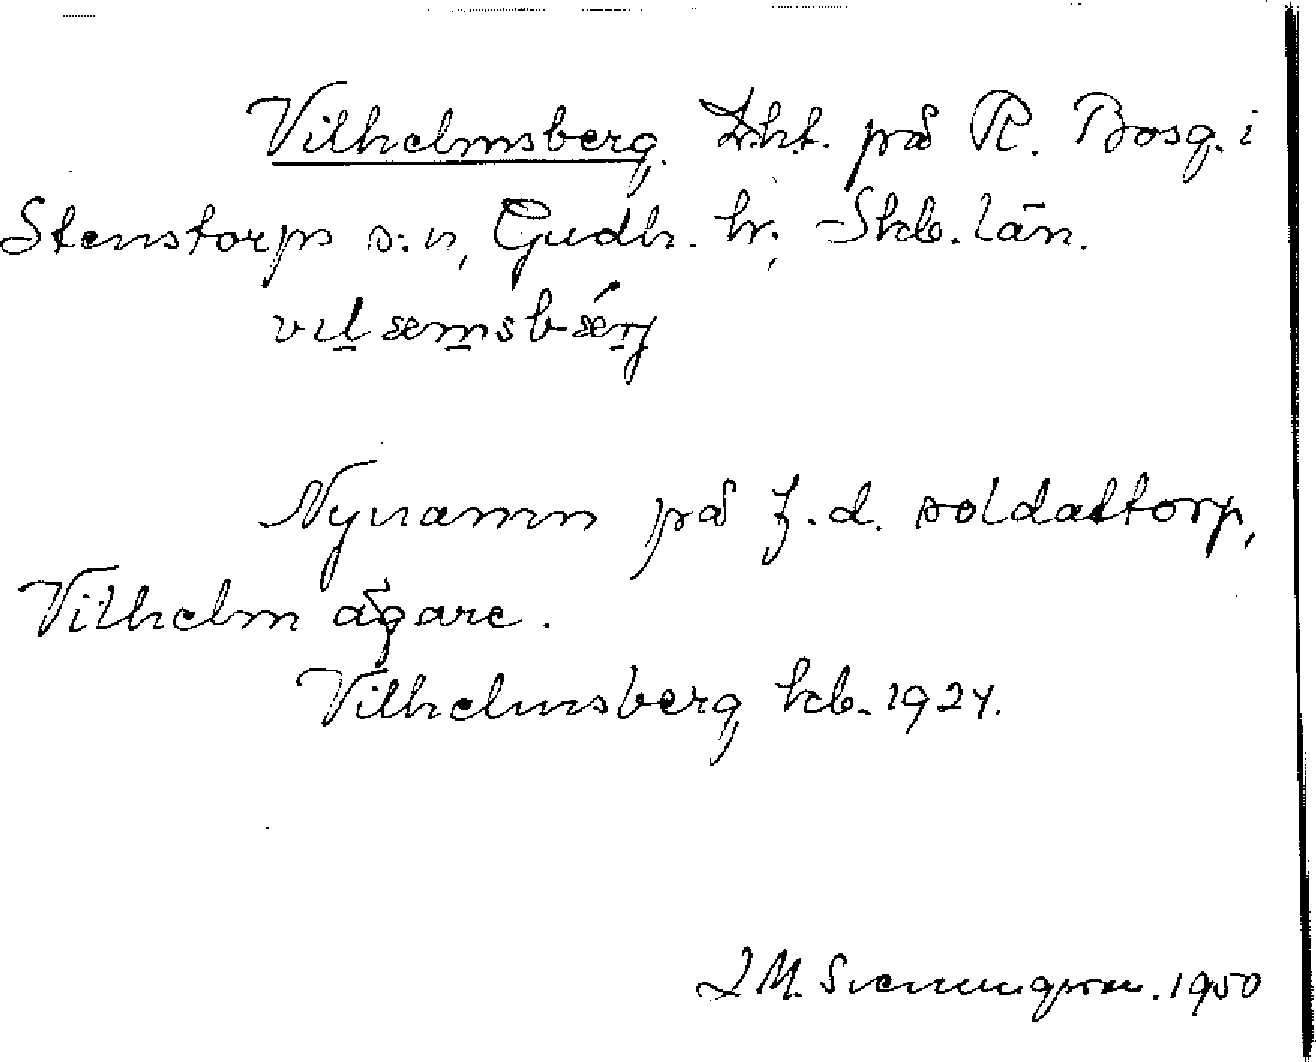 Vilhelmsberg. Lht. på R. Bosg. i
Stenstorps s:n, Gudh. hr, Skb. län.
vilæmsbærj
Nynamn på f.d. soldattorp,
Vilhelm ägare.
Vilhelmsberg hcb. 1924.
Svenungsson. 1950